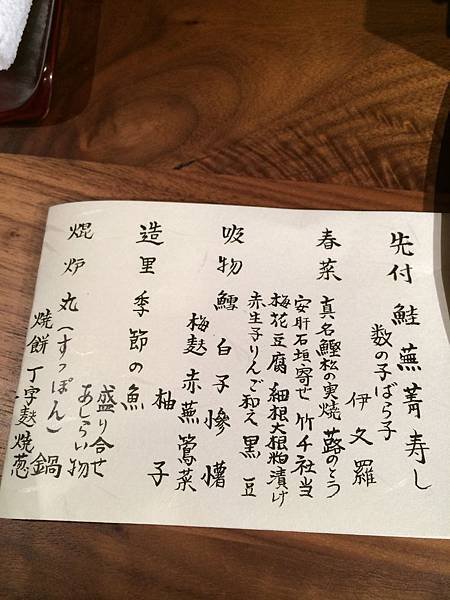 先付 鮭蕪菁寿し
数の子ばら子
伊久羅
春菜 真名鰹松の実焼 蕗のとう
安肝石垣寄せ 竹千社当
梅花豆腐 細根大根粕漬け
赤生子りんご和え 黒豆
吸物 鱈白子慘澑
梅麩 赤蕪 鶯菜
柚子
造里 季節の魚
盛り合せ
あしらい物
焜炉 丸(すっぽん)鍋
焼餅 丁字麩 焼葱